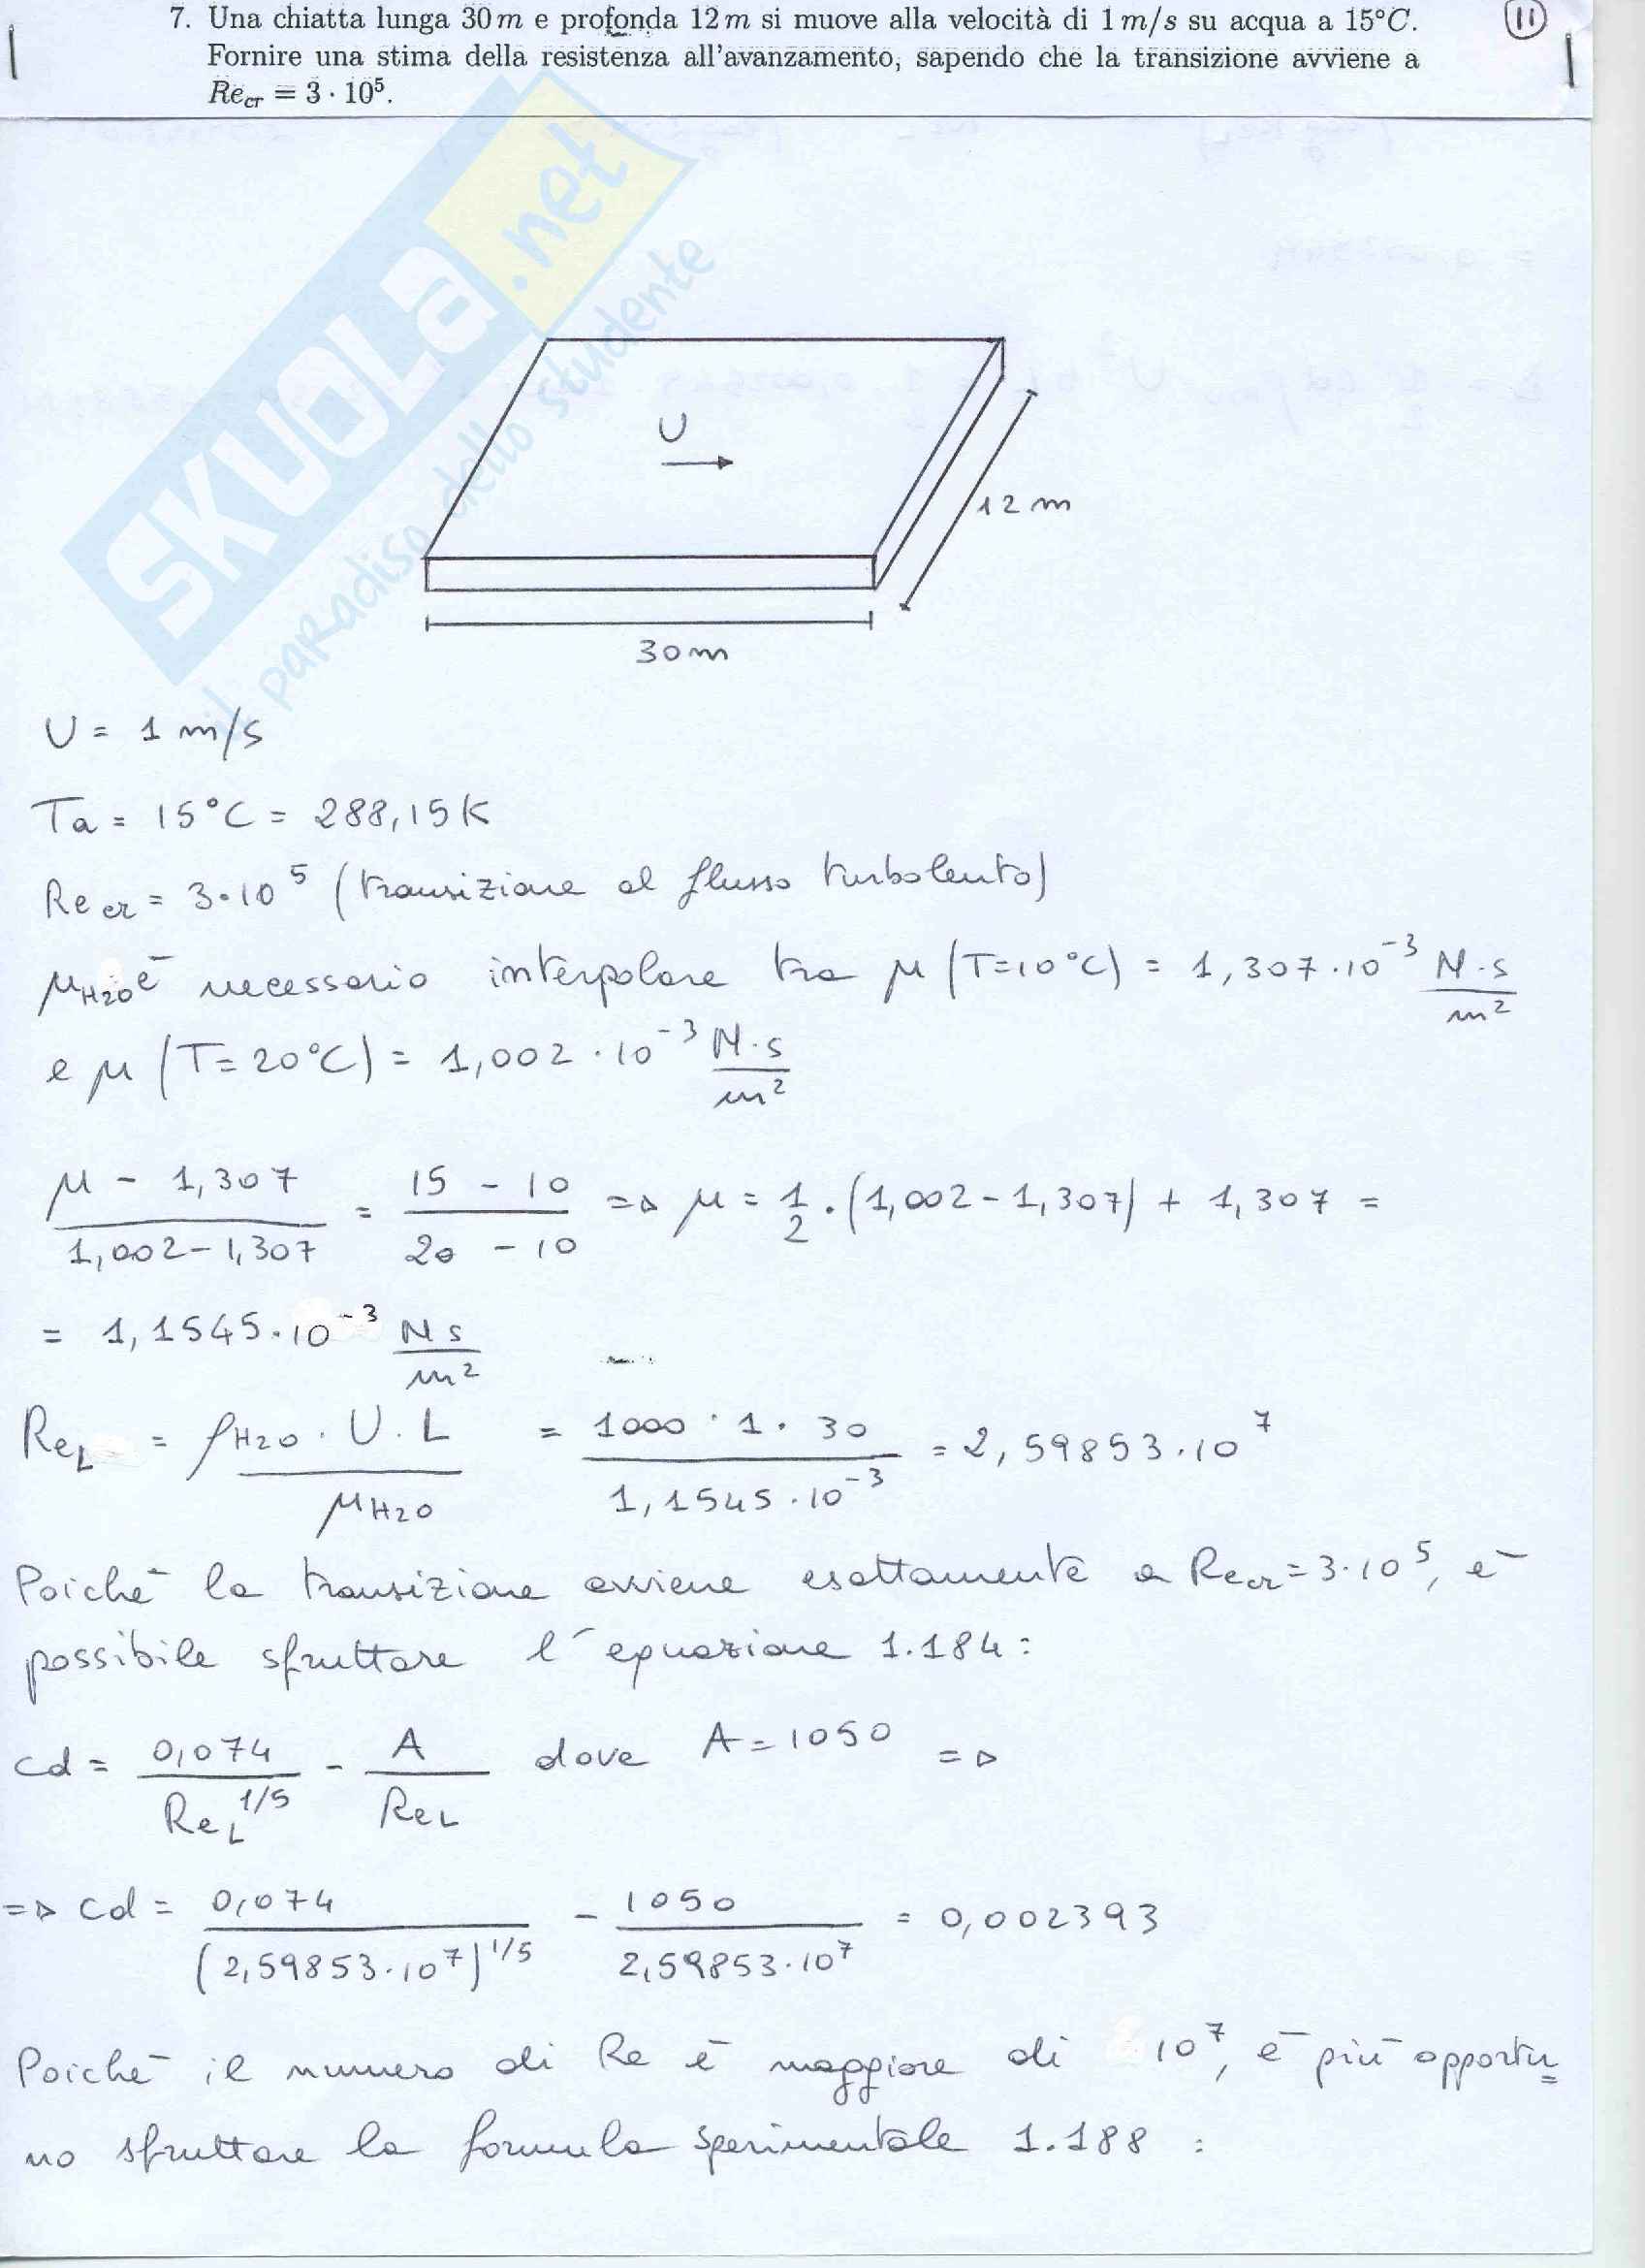 7. Una chiatta lunga 30 m e profonda 12 m si muove alla velocità di 1 m/s su acqua a 15°C.
Fornire una stima della resistenza all'avanzamento, sapendo che la transizione avviene a
Re_cr = 3 · 10⁵.
11
SKUOLA.net
il paradiso dello studente
U
12 m
30 m
U = 1 m/s
Ta = 15°C = 288,15 K
Re cr = 3·10⁵ (transizione al flusso turbolento)
μH2O è necessario interpolare tra μ (T=10°C) = 1,307·10⁻³ N·s/m²
e μ (T=20°C) = 1,002·10⁻³ N·s/m²
(μ - 1,307)/(1,002-1,307) = (15 - 10)/(20 - 10) => μ = 1/2 · (1,002-1,307) + 1,307 =
= 1,1545·10⁻³ Ns/m²
Re_L = ρH2O · U · L / μH2O = 1000 · 1 · 30 / 1,1545·10⁻³ = 2,59853·10⁷
Poichè la transizione avviene esattamente a Re cr = 3·10⁵, è
possibile sfruttare l'equazione 1.184:
cd = 0,074/Re_L^1/5 - A/Re_L dove A = 1050 =>
=> cd = 0,074/(2,59853·10⁷)^1/5 - 1050/2,59853·10⁷ = 0,002393
Poichè il numero di Re è maggiore di 10⁷, è più opportu=
no sfruttare la formula sperimentale 1.188 :